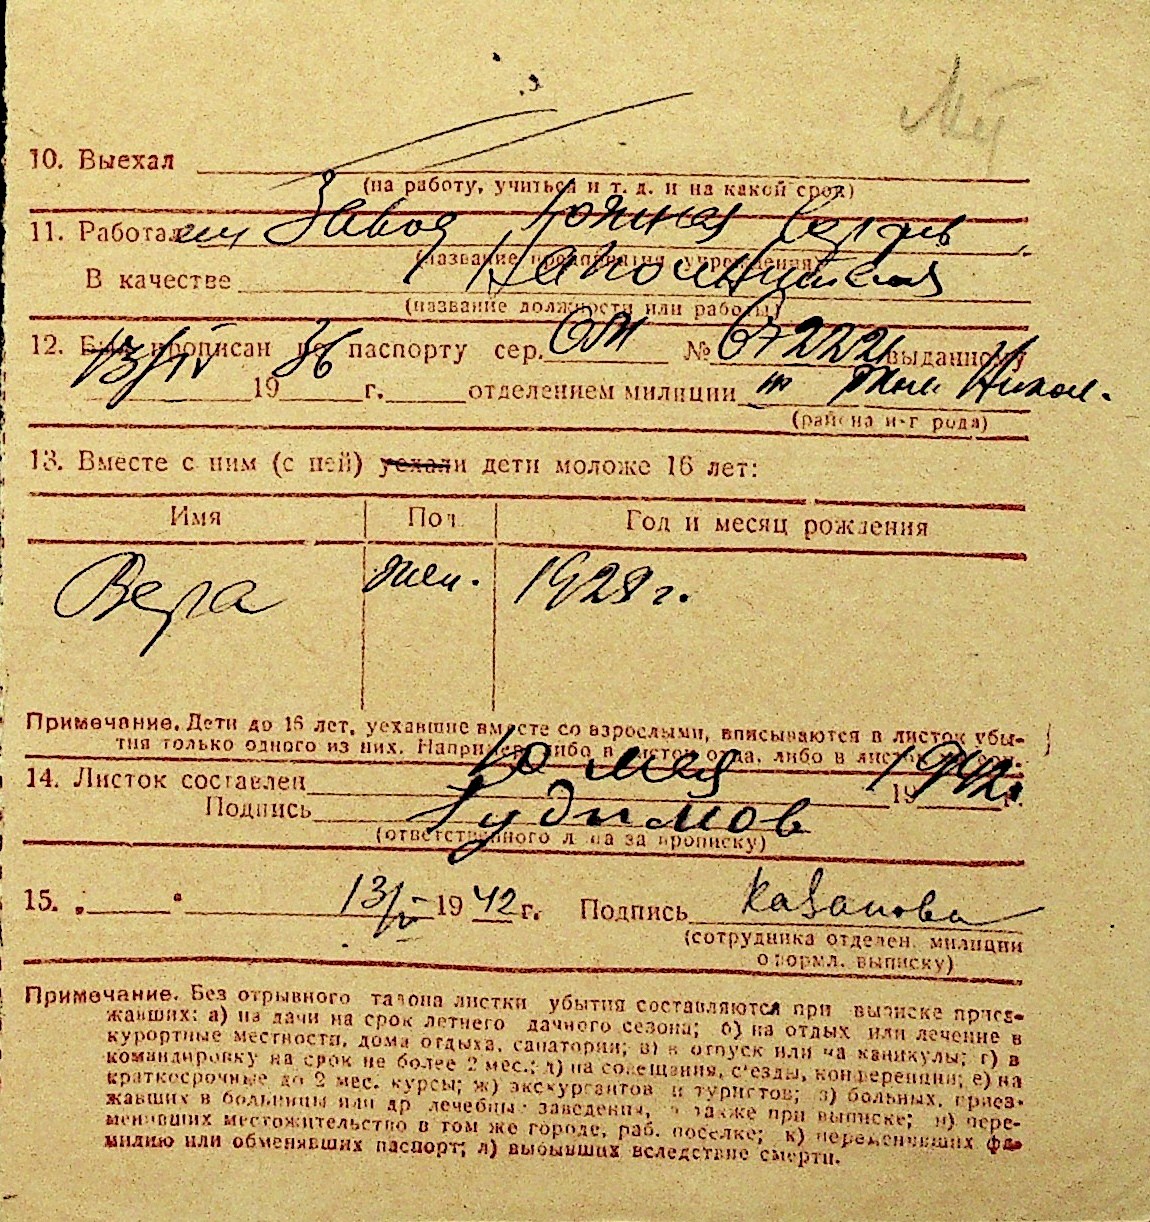 10. Выехал
(на работу, учиться и т. д. и на какой срок)
11. Работал Завод
(название предприятия учреждения)
В качестве
(название должности или работы)
12. Был прописан по паспорту сер. № 672221 выданному
13/IV 1936 г. отделением милиции
(района и-г рода)
13. Вместе с ним (с ней) уехали дети моложе 16 лет:
Имя Пол Год и месяц рождения
Вера жен. 1928 г.
Примечание. Дети до 16 лет, уехавшие вместе со взрослыми, вписываются в листок убы-
тия только одного из них. Например либо в листок отца, либо в листок
14. Листок составлен 10 мая 1942 г.
Подпись Гудимов
(ответственного лица за прописку)
15. „ " 13/V 1942 г. Подпись Казанова
(сотрудника отделен. милиции
оформл. выписку)
Примечание. Без отрывного талона листки убытия составляются при выписке приез-
жавших: а) на дачи на срок летнего дачного сезона; б) на отдых или лечение в
курортные местности, дома отдыха, санатории; в) в отпуск или на каникулы; г) в
командировку на срок не более 2 мес.; д) на совещания, с'езды, конференции; е) на
краткосрочные до 2 мес. курсы; ж) экскурсантов и туристов; з) больных, приез-
жавших в больницы или др лечебные заведения, а также при выписке; и) пере-
менивших местожительство в том же городе, раб. поселке; к) переменивших фа-
милию или обменявших паспорт; л) выбывших вследствие смерти.